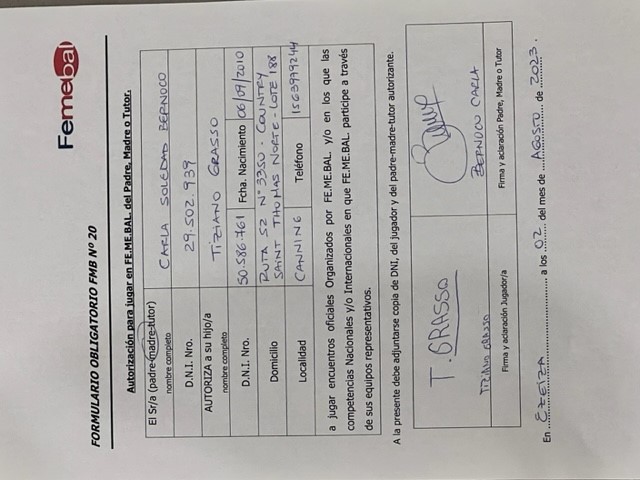 Femebal
FORMULARIO OBLIGATORIO FMB Nº 20
Autorización para jugar en FE.ME.BAL. del Padre, Madre o Tutor.
El Sr/a (padre-madre-tutor)
nombre completo
CARLA SOLEDAD BERNOCO
D.N.I. Nro.
29.502.939
AUTORIZA a su hijo/a
nombre completo
TIZIANO GRASSO
D.N.I. Nro.
50.586.761
Fcha. Nacimiento
06/09/2010
Domicilio
RUTA 52 Nº 3350 - COUNTRY
SAINT THOMAS NORTE - LOTE 188
Localidad
CANNING
Teléfono
1563999244
a jugar encuentros oficiales Organizados por FE.ME.BAL. y/o en los que las
competencias Nacionales y/o Internacionales en que FE.ME.BAL. participe a través
de sus equipos representativos.
A la presente debe adjuntarse copia de DNI, del jugador y del padre-madre-tutor autorizante.
T. GRASSO
TIZIANO GRASSO
Firma y aclaración Jugador/a
BERNOCO CARLA
Firma y aclaración Padre, Madre o Tutor
En EZEIZA a los 02 del mes de AGOSTO de 2023.